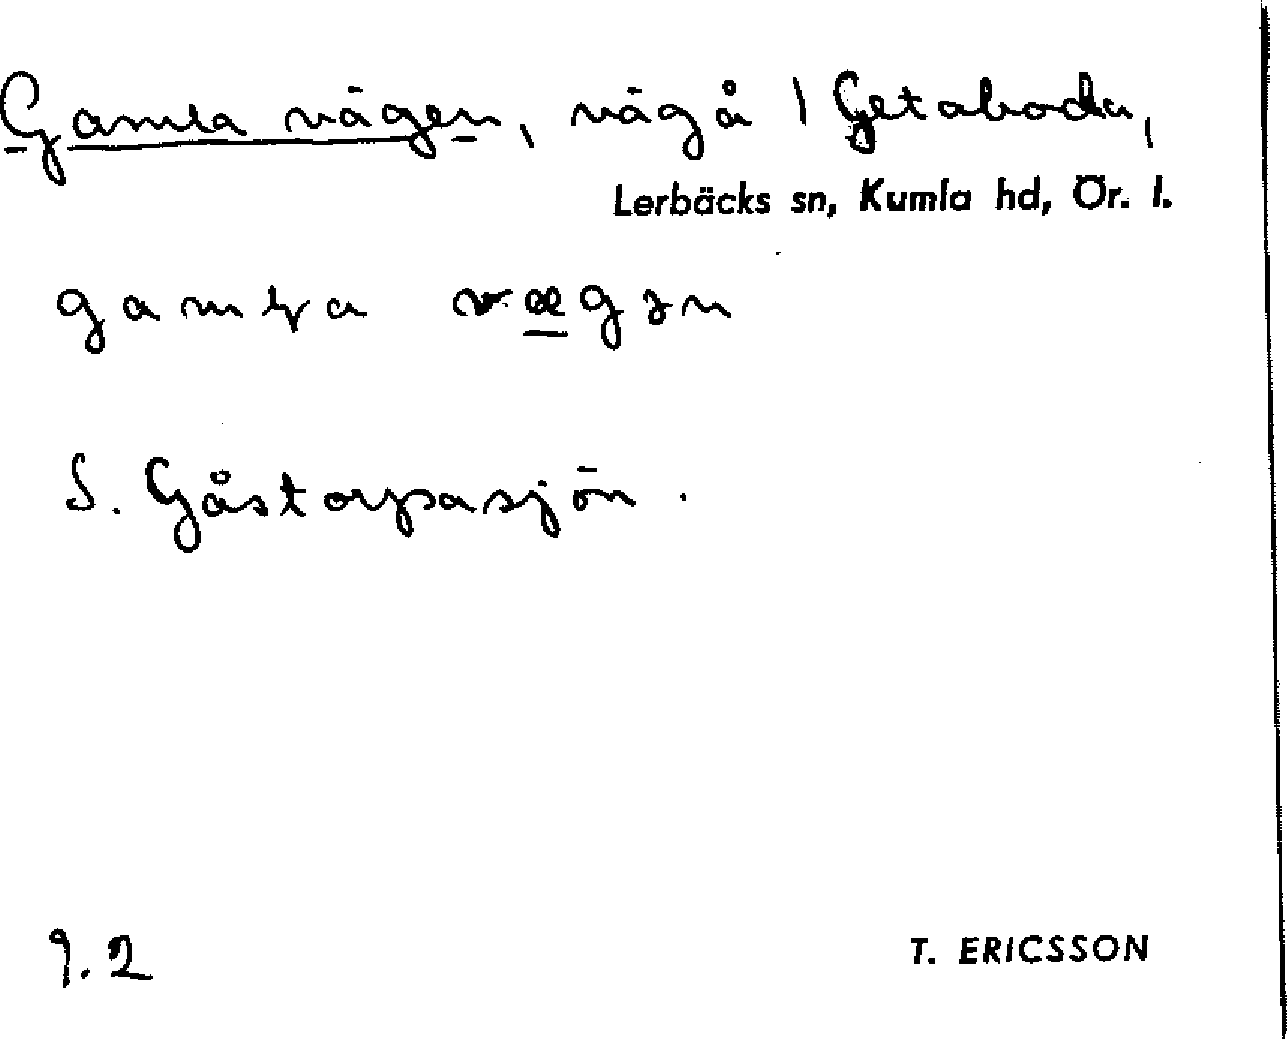 Gamla vägen, väg å 1 Getaboda,
Lerbäcks sn, Kumla hd, Ör. l.
gamła vægən
S. Gåstorpasjön.
9.2
T. ERICSSON